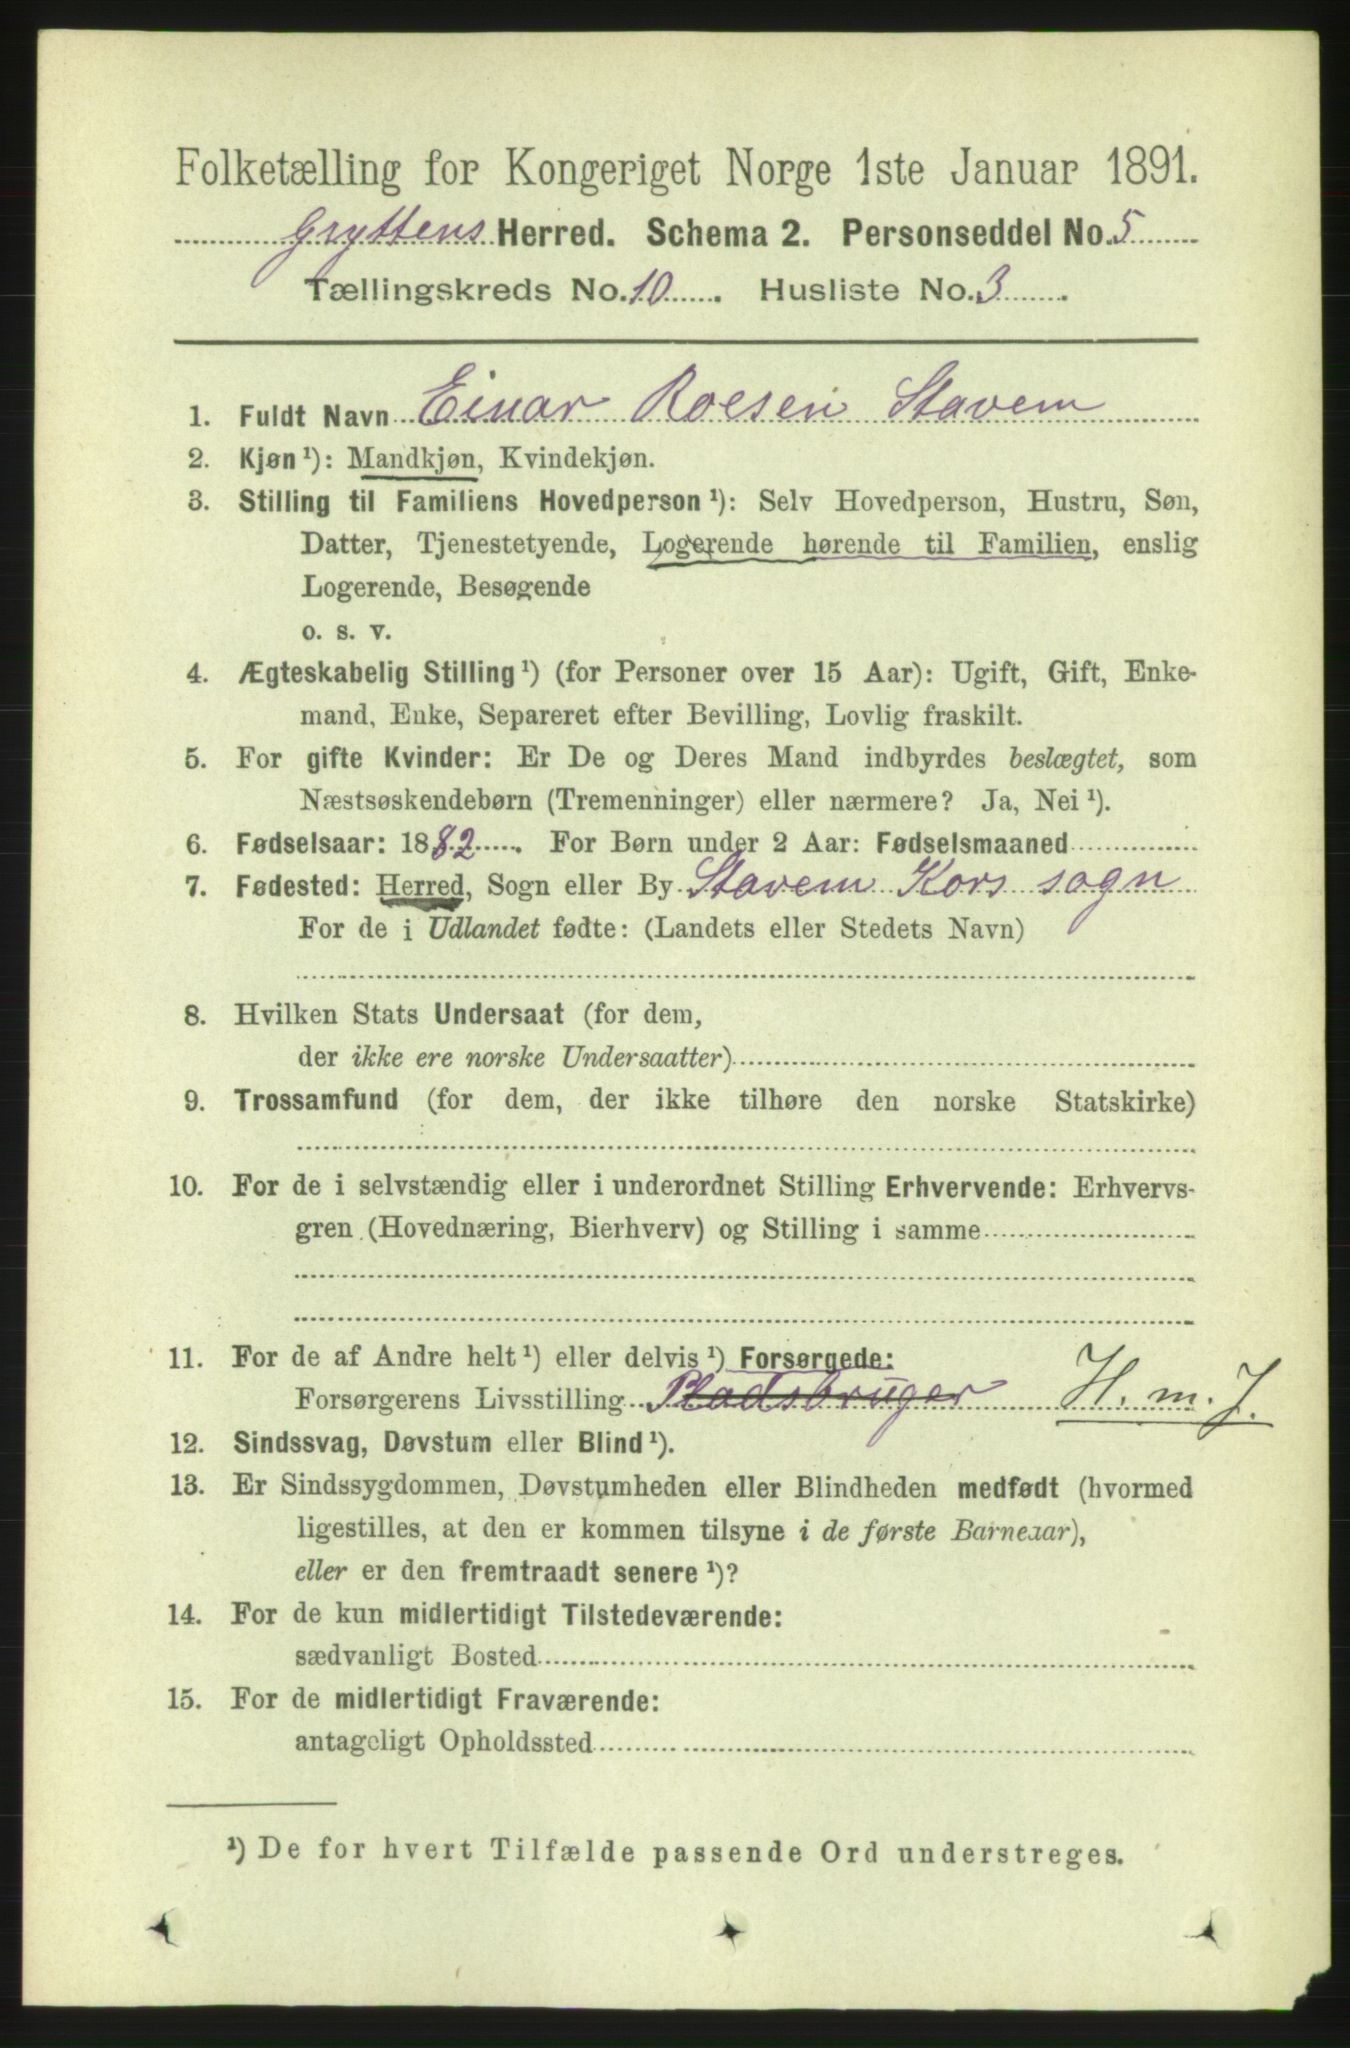 Folketælling for Kongeriget Norge 1ste Januar 1891.
Gryttens Herred. Schema 2. Personseddel No. 5
Tællingskreds No. 10. Husliste No. 3.
1. Fuldt Navn Einar Roesen Stavem
2. Kjøn¹): Mandkjøn, Kvindekjøn.
3. Stilling til Familiens Hovedperson¹): Selv Hovedperson, Hustru, Søn,
Datter, Tjenestetyende, Logerende hørende til Familien, enslig
Logerende, Besøgende
o. s. v.
4. Ægteskabelig Stilling¹) (for Personer over 15 Aar): Ugift, Gift, Enke-
mand, Enke, Separeret efter Bevilling, Lovlig fraskilt.
5. For gifte Kvinder: Er De og Deres Mand indbyrdes beslægtet, som
Næstsøskendebørn (Tremenninger) eller nærmere? Ja, Nei¹).
6. Fødselsaar: 1882. For Børn under 2 Aar: Fødselsmaaned
7. Fødested: Herred, Sogn eller By Stavem Kors sogn
For de i Udlandet fødte: (Landets eller Stedets Navn)
8. Hvilken Stats Undersaat (for dem,
der ikke ere norske Undersaatter)
9. Trossamfund (for dem, der ikke tilhøre den norske Statskirke)
10. For de i selvstændig eller i underordnet Stilling Erhvervende: Erhvervs-
gren (Hovednæring, Bierhverv) og Stilling i samme
11. For de af Andre helt¹) eller delvis¹) Forsørgede:
Forsørgerens Livsstilling Pladsbruger H. m. J.
12. Sindssvag, Døvstum eller Blind¹).
13. Er Sindssygdommen, Døvstumheden eller Blindheden medfødt (hvormed
ligestilles, at den er kommen tilsyne i de første Barneaar),
eller er den fremtraadt senere¹)?
14. For de kun midlertidigt Tilstedeværende:
sædvanligt Bosted
15. For de midlertidigt Fraværende:
antageligt Opholdssted
¹) De for hvert Tilfælde passende Ord understreges.